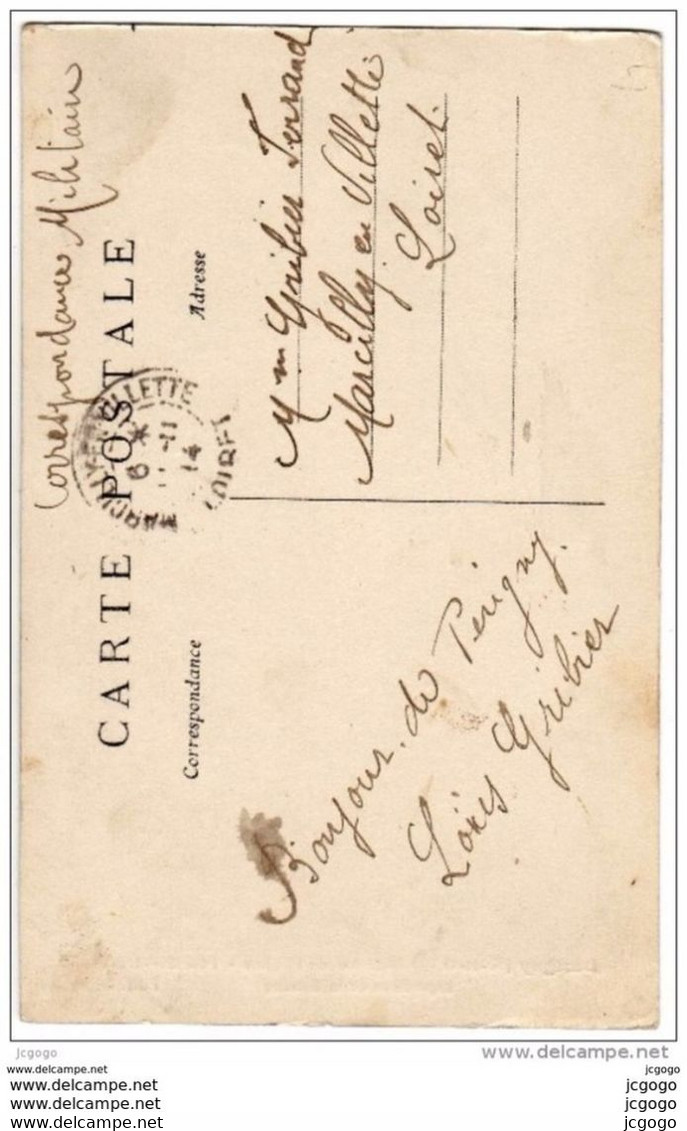 Correspondance Militaire
CARTE POSTALE
Correspondance
Adresse
MARCILLY-EN-VILLETTE
6 *
-11
14
LOIRET
Mme Gribier Ferrand
Marcilly en Villette
Loiret
Bonjour de Périgny.
Loüis Gribier
jcgogo
delcampe.net
jcgogo
www.delcampe.net
jcgogo
www.delcampe.net
jcgogo
www.delcampe.net
jcgogo
www.delcampe.net